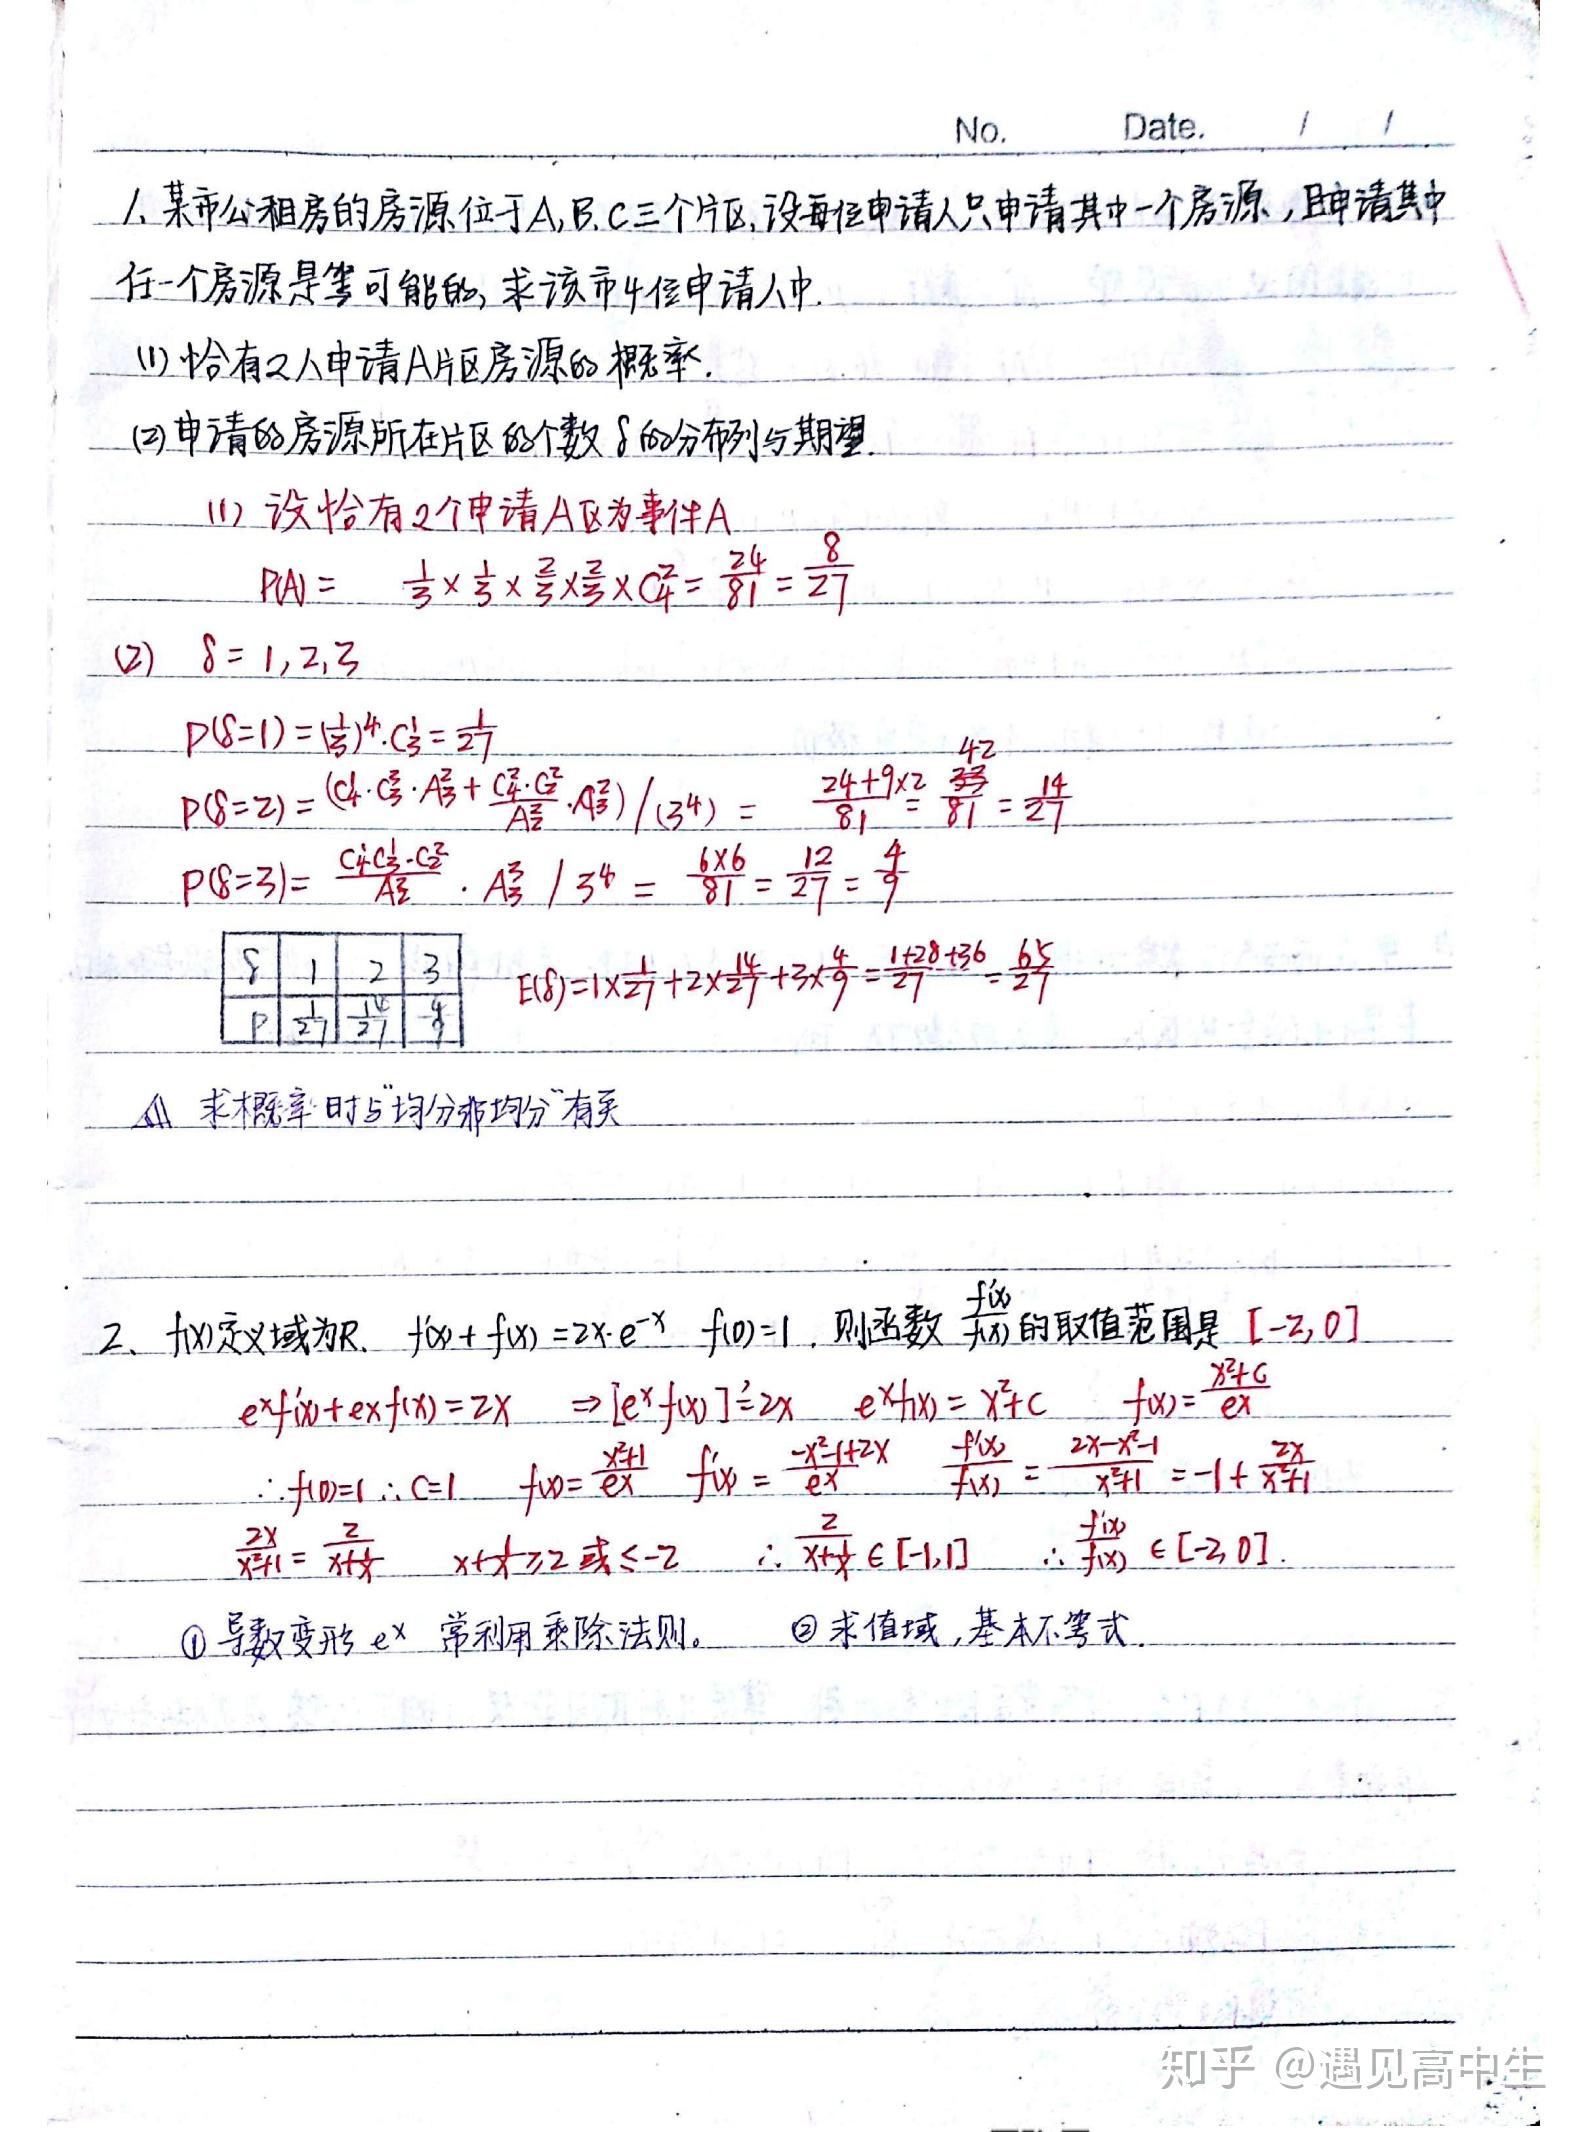 No. Date. / /
1、某市公租房的房源位于A,B,C三个片区,设每位申请人只申请其中一个房源,且申请其中
任一个房源是等可能的,求该市4位申请人中.
(1) 恰有2人申请A片区房源的概率.
(2)申请的房源所在片区的个数 δ 的分布列与期望.
(1) 设恰有2个申请A区为事件A
P(A) = 1/3 × 1/3 × 2/3 × 2/3 × C₄² = 24/81 = 8/27
(2) δ = 1,2,3
P(δ=1) = (1/3)⁴·C₃¹ = 1/27
P(δ=2) = (C₄¹·C₃³·A₃² + C₄²·C₂²/A₂²·A₃²) / (3⁴) = 24+9×2/81 = 42/81 = 14/27
P(δ=3) = C₄¹C₃¹·C₂²/A₂² · A₃³ / 3⁴ = 6×6/81 = 12/27 = 4/9
δ 1 2 3
P 1/27 14/27 4/9
E(δ)=1×1/27+2×14/27+3×4/9=1+28+36/27=65/27
求概率时与“均分非均分”有关
2、 f(x)定义域为R. f'(x) + f(x) = 2x·e⁻ˣ f(0)=1. 则函数 f'(x)/f(x) 的取值范围是 [-2,0]
eˣf'(x)+eˣf(x)=2x ⇒[eˣf(x)]'=2x eˣf(x)=x²+C f(x)=x²+C/eˣ
∵f(0)=1 ∴C=1 f(x)=x²+1/eˣ f'(x)=-x²-1+2x/eˣ f'(x)/f(x)=2x-x²-1/x²+1=-1+2x/x²+1
2x/x²+1=2/x+1/x x+1/x≥2 或≤-2 ∴2/x+1/x∈[-1,1] ∴f'(x)/f(x)∈[-2,0].
①导数变形 eˣ 常利用乘除法则。 ②求值域,基本不等式.
知乎 @遇见高中生